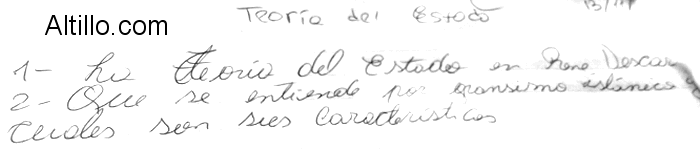 Altillo.com
Teoría del Estado
1- La teoria del Estado en Rene Descar
2- Que se entiende por islámico y
Cuales son sus Caracteristicas